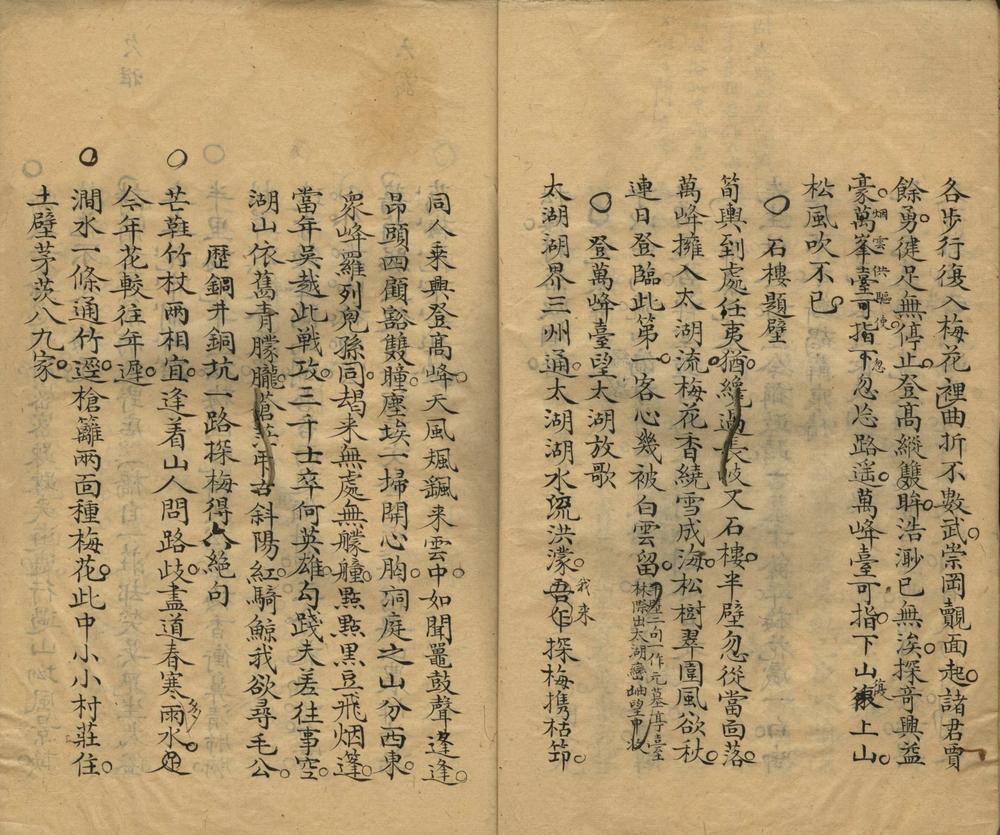 各步行復入梅花裡曲折不數武崇岡覿面起諸君賈
餘勇健足無停止登高縱雙眸浩渺已無涘探奇興益
豪萬峯臺可指下忽忩路遙萬峰臺可指下山復上山
烟雲供驅使
忽
復
松風吹不已
石樓題壁
筍輿到處任夷猶纔過長岐又石樓半壁忽從當面落
萬峰擁入太湖流梅花香繞雪成海松樹翠圍風欲秋
連日登臨此第一客心幾被白雲留
二句一作元墓亭臺
林際出太湖巒岫望中收
登萬峰臺望太湖放歌
太湖湖界三州通太湖湖水流洪濛吾作探梅携枯筇
我来
同人乘興登高峰天風颯颯来雲中如聞鼉鼓聲逢逢
昂頭四顧豁雙瞳塵埃一埽開心胸洞庭之山分西東
衆峰羅列兒孫同朅来無處無艨艟點點黑豆飛烟蓬
當年吳越此戰攻三千士卒何英雄勾踐夫差往事空
湖山依舊青朦朧蒼茫弔古斜陽紅騎鯨我欲尋毛公
歷銅井銅坑一路探梅得八絕句
芒鞋竹杖兩相宜逢着山人問路歧盡道春寒雨水
多
今年花較往年遲
澗水一條通竹逕槍籬兩面種梅花此中小小村莊住
土壁茅茨八九家